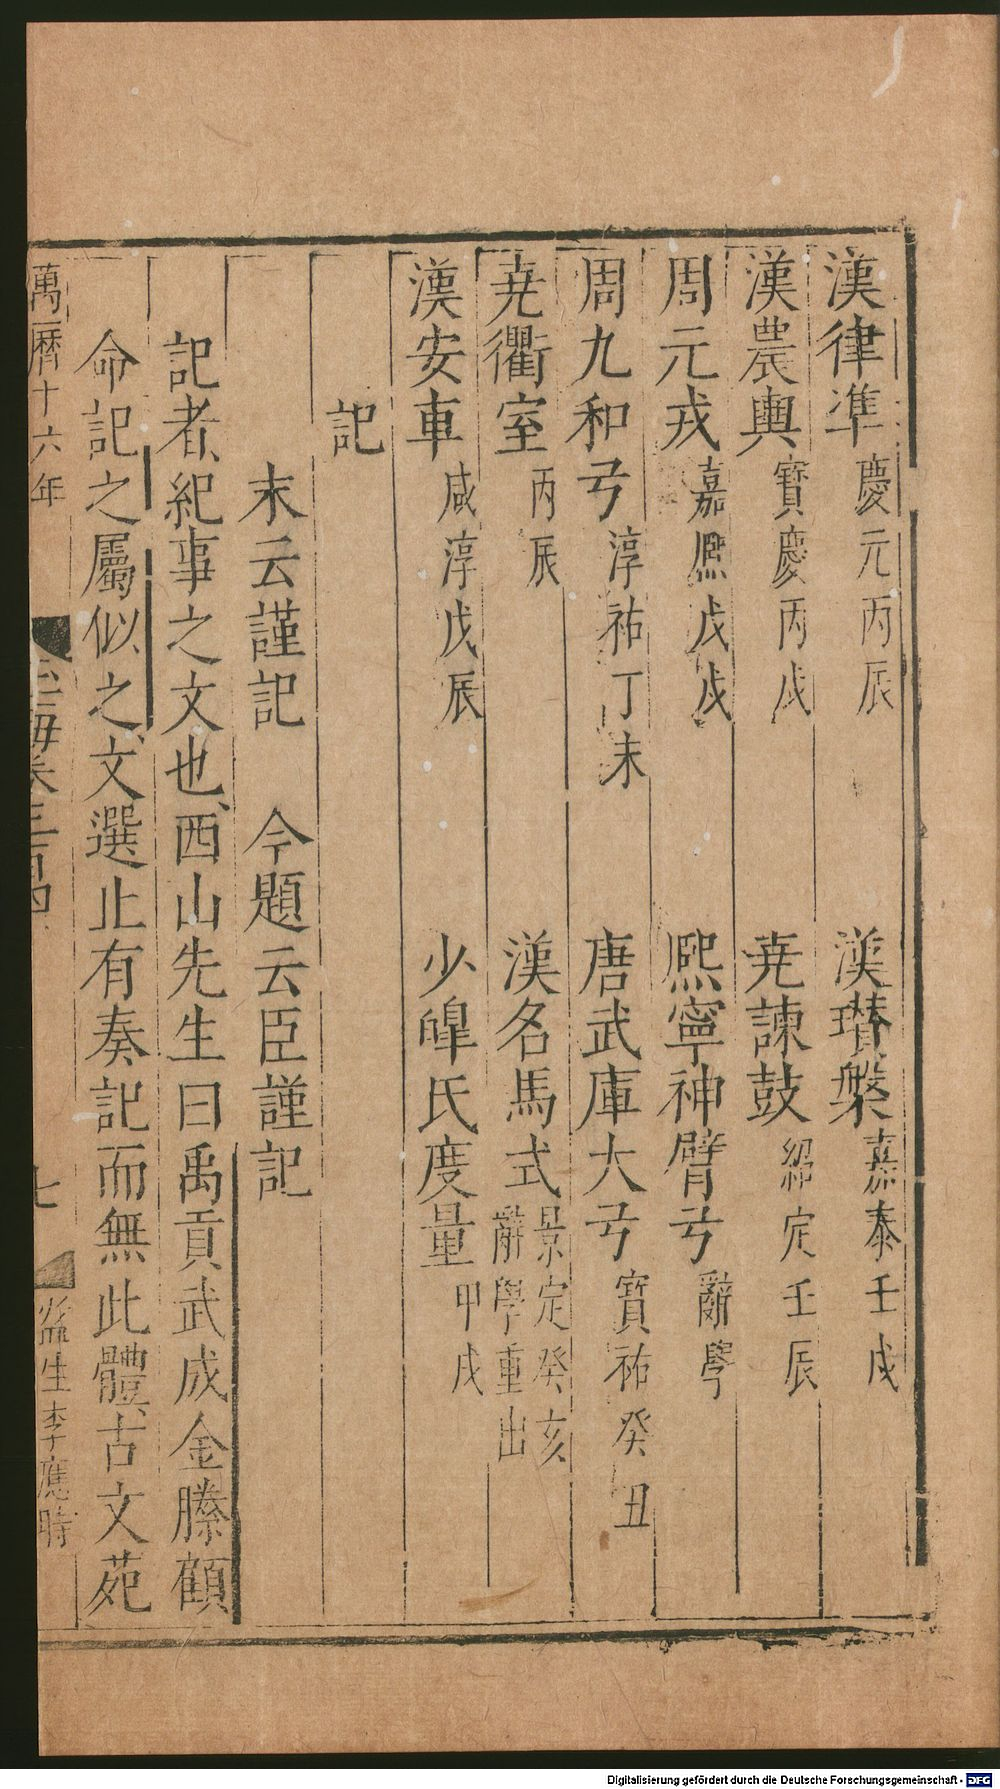 漢律準慶元丙辰　漢瓚槃嘉泰壬戌
漢農輿寶慶丙戌　堯諫鼓紹定壬辰
周元戎嘉熙戊戌　熙寧神臂弓辭學
周九和弓淳祐丁未　唐武庫大弓寶祐癸丑
堯衢室丙辰　漢名馬式景定癸亥辭學重出
漢安車咸淳戊辰　少皥氏度量甲戌
記
末云謹記　今題云臣謹記
記者紀事之文也西山先生曰禹貢武成金縢顧
命記之屬似之文選止有奏記而無此體古文苑
萬曆十六年
玉海卷二百四
七
監生李應時
Digitalisierung gefördert durch die Deutsche Forschungsgemeinschaft - DFG